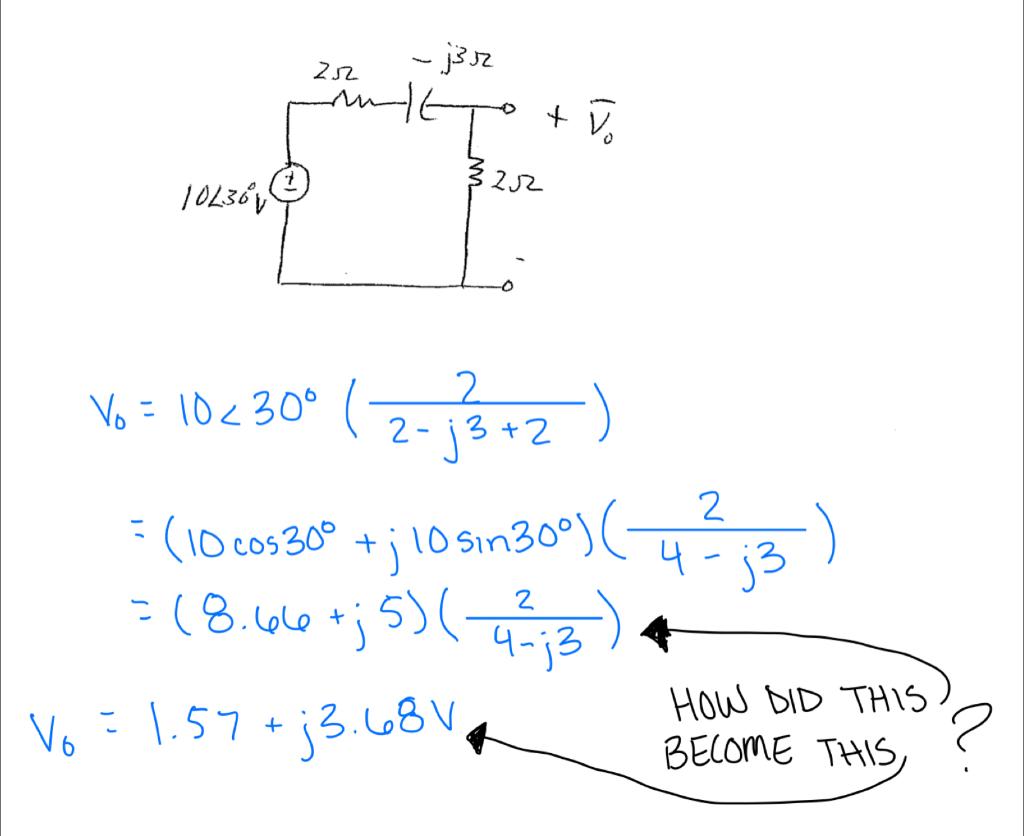 2Ω
- j3Ω
+ V̄₀
10∠30° V
±
2Ω
-
V₀ = 10∠30° ( 2 / 2 - j3 + 2 )
= (10 cos30° + j 10 sin30°) ( 2 / 4 - j3 )
= (8.66 + j 5) ( 2 / 4 - j3 )
V₀ = 1.57 + j3.68 V
HOW DID THIS
BECOME THIS
?